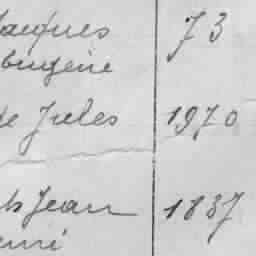 Jacques 73
Eugène
de Jules 1970
ls Jean 1837
enri